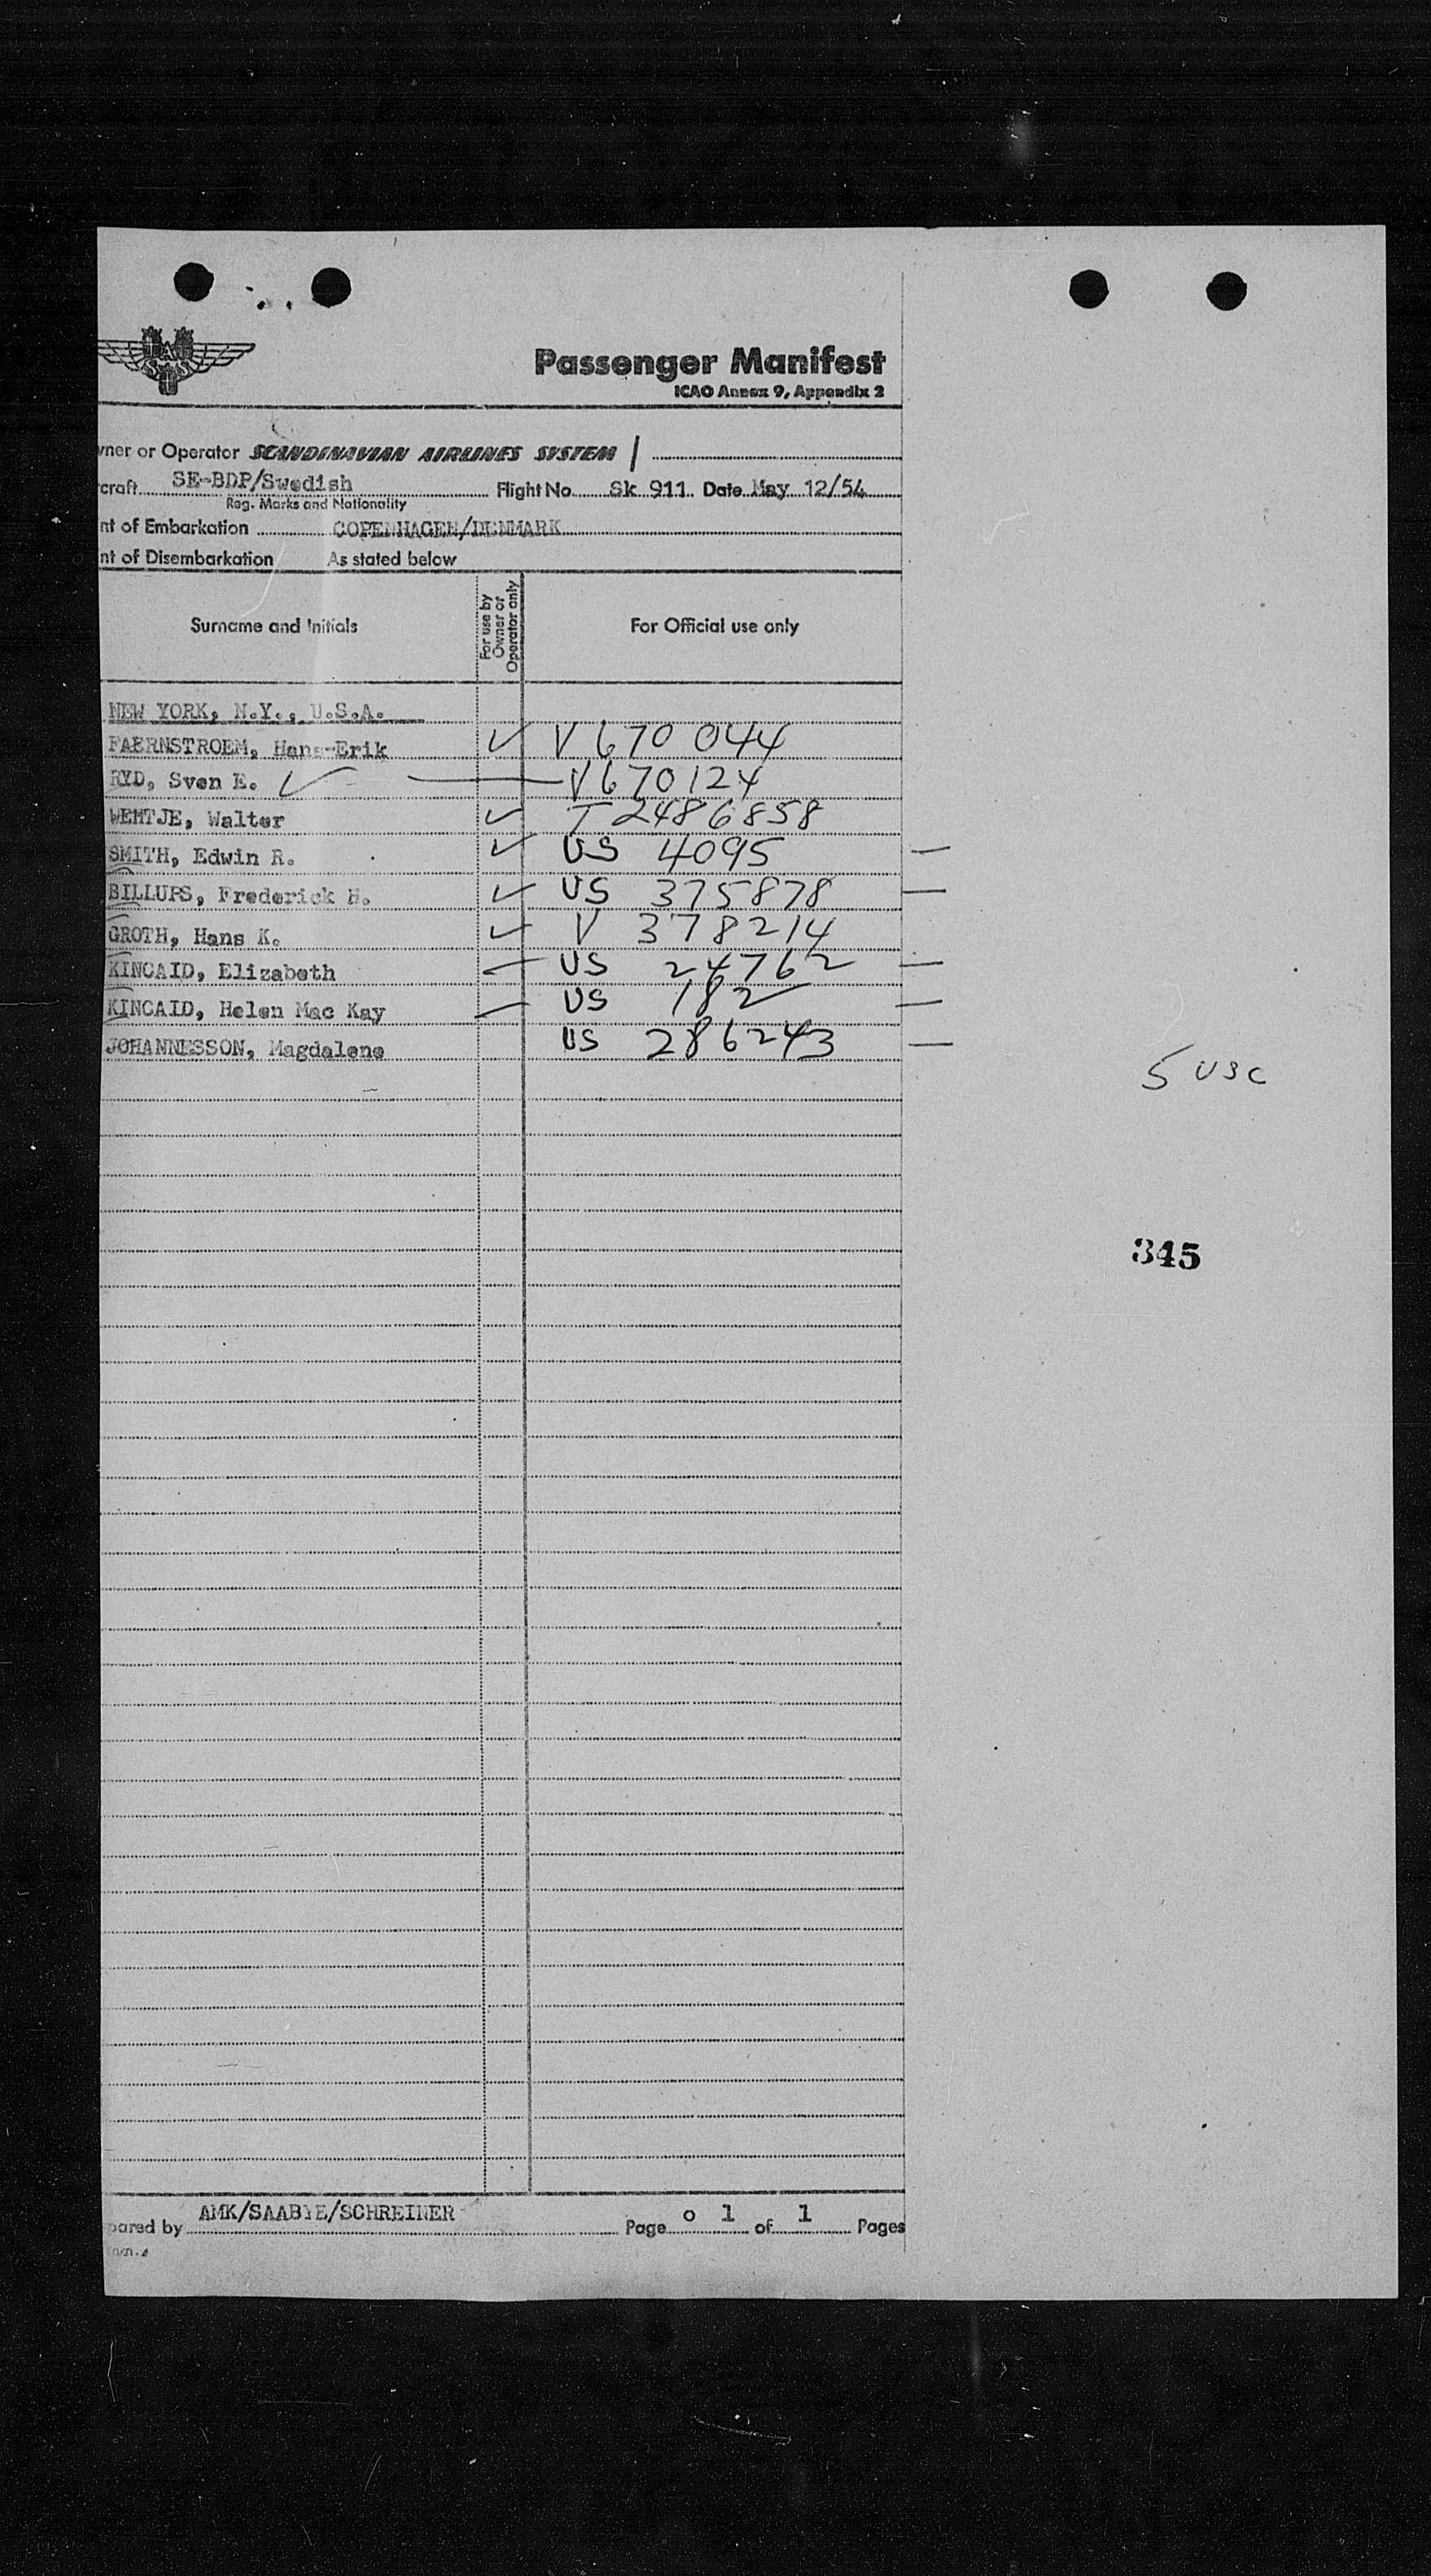 Passenger Manifest
ICAO Annex 9, Appendix 2
wner or Operator SCANDINAVIAN AIRLINES SYSTEM
craft SE-BDP/Swedish Flight No. Sk 911 Date May 12/54
Reg. Marks and Nationality
nt of Embarkation COPENHAGEN/DENMARK
nt of Disembarkation As stated below
Surname and Initials For use by Owner or Operator only For Official use only
NEW YORK, N.Y., U.S.A.
FAERNSTROEM, Hans-Erik V 670 044
RYD, Sven E. V 670124
WEHTJE, Walter T 2486858
SMITH, Edwin R. US 4095
BILLUPS, Frederick H. US 375878
GROTH, Hans K. V 378214
KINCAID, Elizabeth US 24762
KINCAID, Helen Mac Kay US 182
JOHANNESSON, Magdalene US 286243
5 USC
345
pared by AMK/SAABYE/SCHREINER Page o 1 of 1 Pages